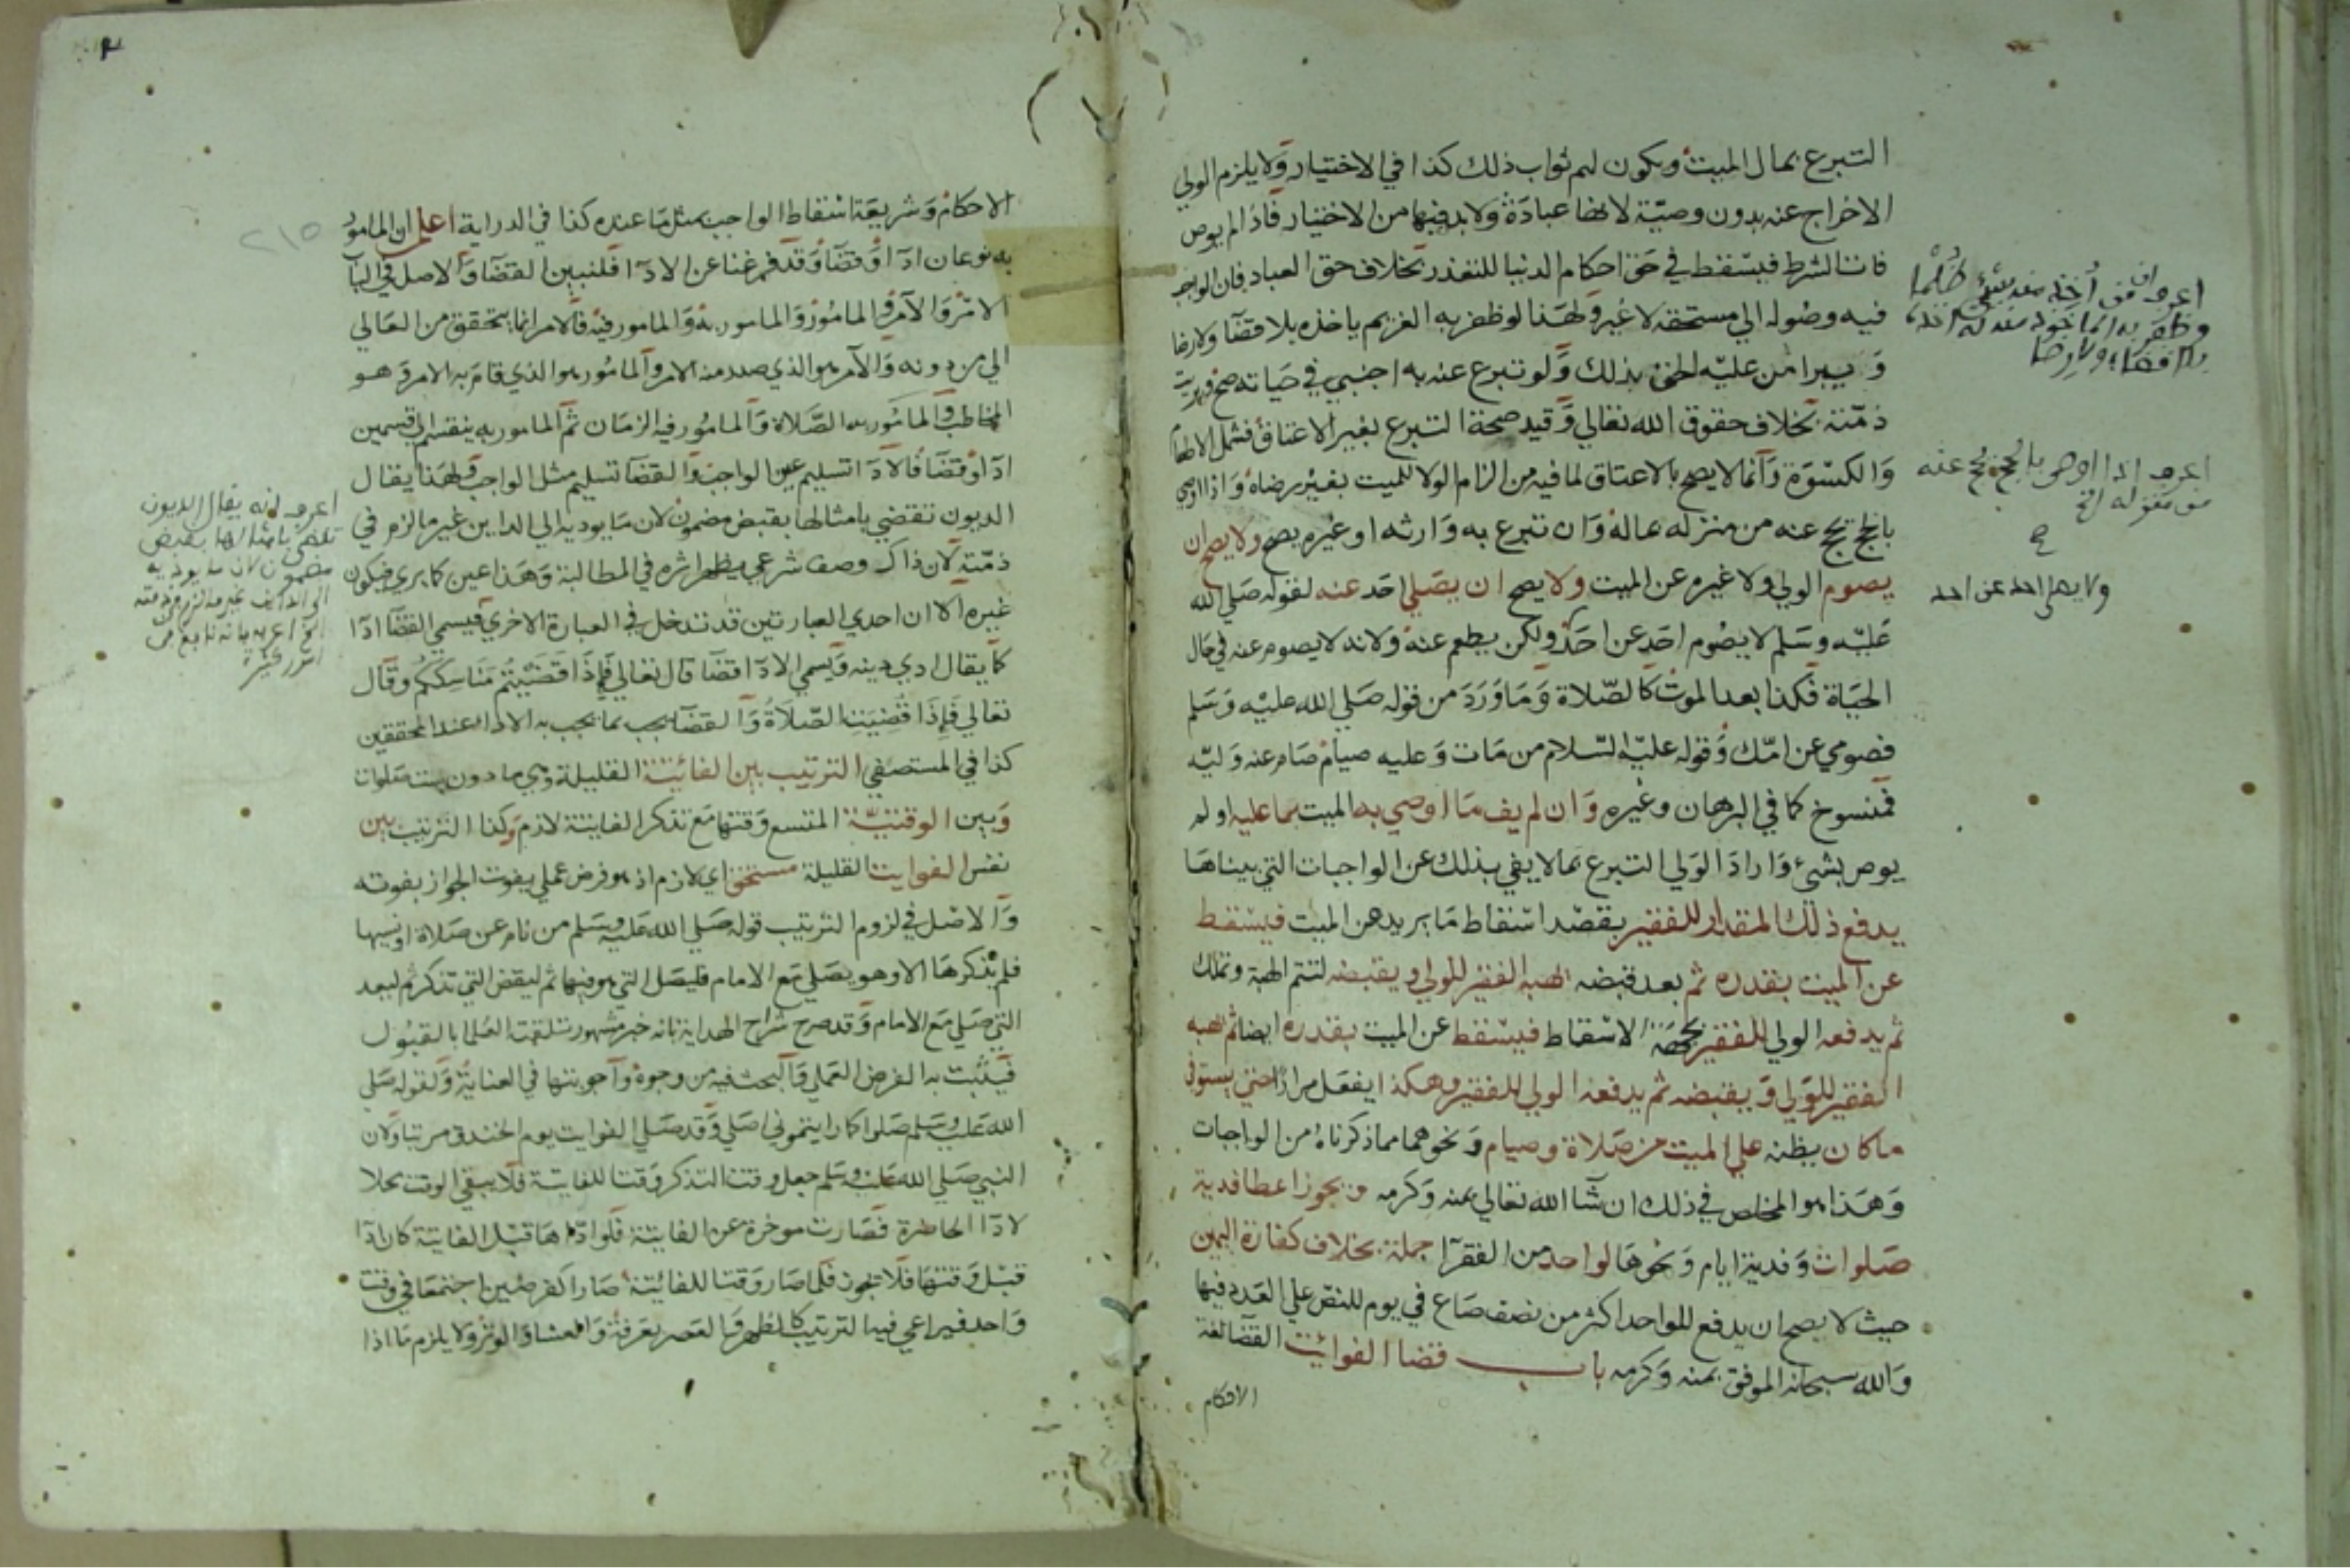 التبرع بمال الميت ويكون لهم ثواب ذلك كذا في الاختيار ولا يلزم الولي
الاخراج عنه بدون وصيّة لانها عبادة ولابد فيها من الاختيار فاذا لم يوص
فات الشرط فيسقط في حق احكام الدنيا للتعذر بخلاف حق العباد فان الواجب
فيه وصوله الي مستحقه لا غير ولهذا لو ظفر به الغريم ياخذه بلا قضآ ولا رضا
ويبرا من عليه الحق بذلك ولو تبرع عنه به اجنبي في حياته صح وبريت
ذمّته بخلاف حقوق الله تعالي وقيد صحة التبرع بغير الاعتاق فشمل الاطعام
والكسوة وانما لا يصح بالاعتاق لما فيه من الزام الولا للميت بغير رضاه واذا اوصي
بالحج يحج عنه من منزله بماله وان تبرع به وارثه او غيره يصح ولا يصح ان
يصوم الولي ولا غيره عن الميت ولا يصح ان يصلي احد عنه لقوله صلي الله
عليه وسلم لا يصوم احد عن احد ولكن يطعم عنه ولانه لا يصوم عنه في حال
الحياة فكذا بعد الموت كالصلاة وما ورد من قوله صلي الله عليه وسلم
فصومي عن امّك وقوله عليه السلام من مات وعليه صيام صام عنه وليّه
فمنسوخ كما في البرهان وغيره وان لم يف ما اوصي به الميت بما عليه او لم
يوص بشئ واراد الولي التبرع بما لا يفي بذلك عن الواجبات التي بيناها
يدفع ذلك المقدار للفقير بقصد اسقاط ما يريد عن الميت فيسقط
عن الميت بقدره ثم بعد قبضه يهبه الفقير للولي ويقبضه لتتم الهبة وتملك
ثم يدفعه الولي للفقير بجهة الاسقاط فيسقط عن الميت بقدره ايضا ثم يهبه
الفقير للولي ويقبضه ثم يدفعه الولي للفقير وهكذا يفعل مرارا حتي يستوفي
ما كان يظنه علي الميت من صلاة وصيام ونحوهما مما ذكرناه من الواجبات
وهذا هو المخلص في ذلك ان شآ الله تعالي بمنه وكرمه ويجوز اعطا فدية
صلوات وفدية ايام ونحوها لواحد من الفقرآ جملة بخلاف كفارة اليمين
حيث لا يصح ان يدفع للواحد اكثر من نصف صاع في يوم للنص علي العدد فيها
والله سبحانه الموفق بمنه وكرمه باب قضا الفوائت القضا لغة
الاحكام
اعرف ان من أُخذ منه شئ ظُلْمًا
وظفر به الماخوذ منه له اخذه
بلا قضاء ولا رضا
اعرف اذا اوصى بالحج يحج عنه
من منزله الخ
ولا يصلى احد عن احد
الاحكام وشريعة اسقاط الواجب بمثل ما عنده كذا في الدراية اعلم ان المامور
به نوعان ادآ وقضآ وقد فرغنا عن الادآ فلنبين القضآ والاصل في البآ
الامر والآمر والمامور والمامور به والمامور فيه فالامر انما يتحقق من العالي
الي من دونه والآمر هو الذي صدر منه الامر والمامور هو الذي قام به الامر وهو
المخاطب والمامور به الصلاة والمامور فيه الزمان ثم المامور به ينقسم الي قسمين
ادآ وقضآ فالادآ تسليم عين الواجب والقضآ تسليم مثل الواجب ولهذا يقال
الديون تقضي بامثالها بقبض مضمون لان ما يوديه الي الداين غير ما لزم في
ذمّته لان ذاك وصف شرعي يظهر اثره في المطالبة وهذا عين كما يري فيكون
غيره الا ان احدي العبارتين قد تدخل في العبارة الاخري فيسمي القضآ ادآ
كما يقال ادي دينه ويسمي الادآ قضآ قال تعالي فَإِذَا قَضَيْتُم مَنَاسِكَكُم وقال
تعالي فَإِذَا قُضِيَتِ الصّلَاةُ والقضآ يجب بما يجب به الادآ عند المحققين
كذا في المستصفي الترتيب بين الفائتة القليلة وهي ما دون ست صلوات
وبين الوقتيّة المتسع وقتها مع تذكر الفايتة لازم وكذا الترتيب بين
نفس الفوايت القليلة مستحق اي لازم اذ هو فرض عملي يفوت الجواز بفوته
والاصل في لزوم الترتيب قوله صلي الله عليه وسلم من نام عن صلاة او نسيها
فلم يذكرها الا وهو يصلي مع الامام فليصل التي هو فيها ثم ليقض التي تذكر ثم ليعد
التي صلي مع الامام وقد صرح شراح الهداية بانه خبر مشهور تلقته العلما بالقبول
فيثبت به الفرض العملي والبحث فيه من وجوه واجوبتها في العناية ولقوله صلي
الله عليه وسلم صلوا كما رايتموني اصلي وقد صلي الفوايت يوم الخندق مرتبا ولان
النبي صلي الله عليه وسلم جعل وقت التذكر وقتا للفايتة فلا يبقي الوقت محلا
لادآ الحاضرة فصارت موخرة عن الفايتة فلو ادّاها قبل الفايتة كان ادآ
قبل وقتها فلا تجوز فلما صار وقتا للفائتة صارا كفرضين اجتمعا في وقت
واحد فيراعي فيه الترتيب كالظهر والعصر بعرفة والعشا والوتر ولا يلزم ما اذا
٢١٥
اعرف انه يقال الديون
تقضى بامثالها بقبض
مضمون لان ما يوديه
الى الداين غير ما لزم في ذمته